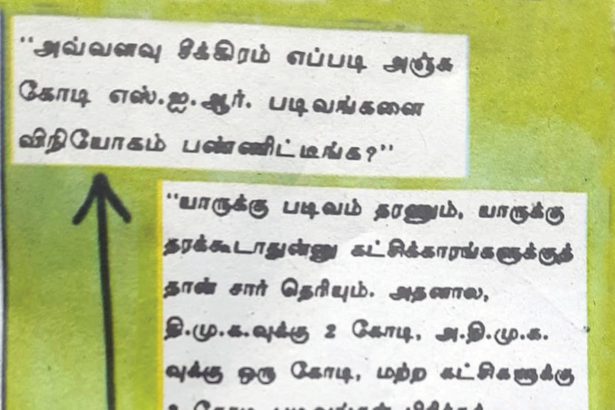 "அவ்வளவு சீக்கிரம் எப்படி அஞ்சு
கோடி எஸ்.ஐ.ஆர். படிவங்களை
விநியோகம் பண்ணிட்டீங்க?"
"யாருக்கு படிவம் தரணும், யாருக்கு
தரக்கூடாதுன்னு கட்சிக்காரங்களுக்குத்
தான் சார் தெரியும். அதனால,
தி.மு.க.வுக்கு 2 கோடி, அ.தி.மு.க.
வுக்கு ஒரு கோடி, மற்ற கட்சிகளுக்கு
கோடி படிவங்கள்